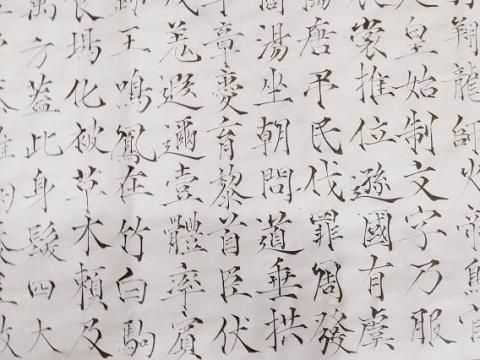 翔龍師火帝鳥官
皇始制文字乃服
裳推位遜國有虞
唐弔民伐罪周發
湯坐朝問道垂拱
平章愛育黎首臣伏
羌遐邇壹體率賓
王鳴鳳在竹白駒
食場化被草木賴及
萬方蓋此身髮四大